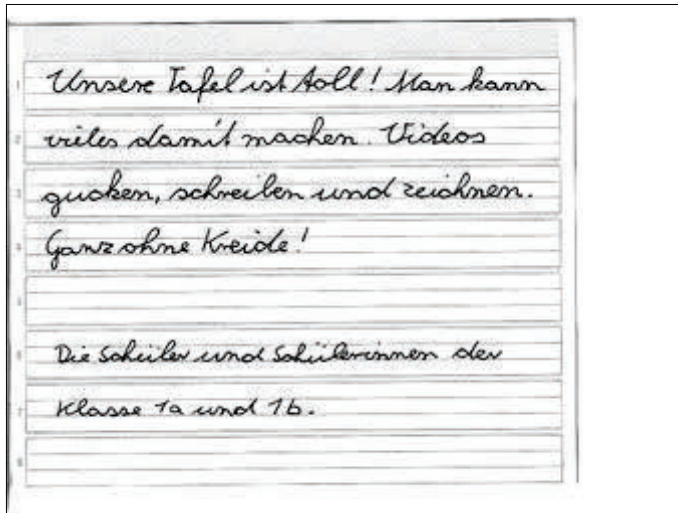 Unsere Tafel ist toll! Man kann
vieles damit machen. Videos
gucken, schreiben und zeichnen.
Ganz ohne Kreide!
Die Schüler und Schülerinnen der
Klasse 1a und 1b.